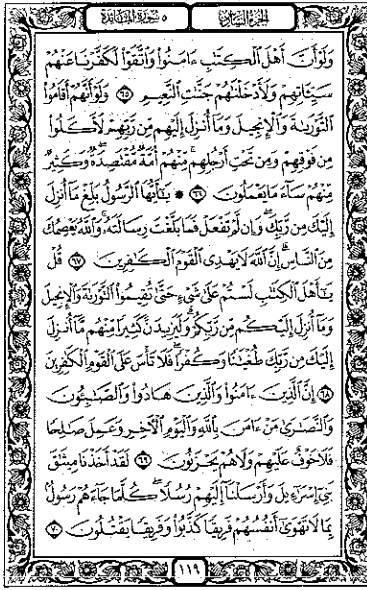 الجزء السادس ٥ سورة المائدة
وَلَوْ أَنَّ أَهْلَ ٱلْكِتَٰبِ ءَامَنُوا۟ وَٱتَّقَوْا۟ لَكَفَّرْنَا عَنْهُمْ
سَيِّـَٔاتِهِمْ وَلَأَدْخَلْنَٰهُمْ جَنَّٰتِ ٱلنَّعِيمِ ٦٥ وَلَوْ أَنَّهُمْ أَقَامُوا۟
ٱلتَّوْرَىٰةَ وَٱلْإِنجِيلَ وَمَآ أُنزِلَ إِلَيْهِم مِّن رَّبِّهِمْ لَأَكَلُوا۟
مِن فَوْقِهِمْ وَمِن تَحْتِ أَرْجُلِهِم ۚ مِّنْهُمْ أُمَّةٌ مُّقْتَصِدَةٌ ۖ وَكَثِيرٌ
مِّنْهُمْ سَآءَ مَا يَعْمَلُونَ ٦٦ ۞ يَٰٓأَيُّهَا ٱلرَّسُولُ بَلِّغْ مَآ أُنزِلَ
إِلَيْكَ مِن رَّبِّكَ ۖ وَإِن لَّمْ تَفْعَلْ فَمَا بَلَّغْتَ رِسَالَتَهُۥ ۚ وَٱللَّهُ يَعْصِمُكَ
مِنَ ٱلنَّاسِ ۗ إِنَّ ٱللَّهَ لَا يَهْدِى ٱلْقَوْمَ ٱلْكَٰفِرِينَ ٦٧ قُلْ
يَٰٓأَهْلَ ٱلْكِتَٰبِ لَسْتُمْ عَلَىٰ شَىْءٍ حَتَّىٰ تُقِيمُوا۟ ٱلتَّوْرَىٰةَ وَٱلْإِنجِيلَ
وَمَآ أُنزِلَ إِلَيْكُم مِّن رَّبِّكُمْ ۗ وَلَيَزِيدَنَّ كَثِيرًا مِّنْهُم مَّآ أُنزِلَ
إِلَيْكَ مِن رَّبِّكَ طُغْيَٰنًا وَكُفْرًا ۖ فَلَا تَأْسَ عَلَى ٱلْقَوْمِ ٱلْكَٰفِرِينَ
٦٨ إِنَّ ٱلَّذِينَ ءَامَنُوا۟ وَٱلَّذِينَ هَادُوا۟ وَٱلصَّٰبِـُٔونَ
وَٱلنَّصَٰرَىٰ مَنْ ءَامَنَ بِٱللَّهِ وَٱلْيَوْمِ ٱلْءَاخِرِ وَعَمِلَ صَٰلِحًا
فَلَا خَوْفٌ عَلَيْهِمْ وَلَا هُمْ يَحْزَنُونَ ٦٩ لَقَدْ أَخَذْنَا مِيثَٰقَ
بَنِىٓ إِسْرَٰٓءِيلَ وَأَرْسَلْنَآ إِلَيْهِمْ رُسُلًا ۖ كُلَّمَا جَآءَهُمْ رَسُولٌۢ
بِمَا لَا تَهْوَىٰٓ أَنفُسُهُمْ فَرِيقًا كَذَّبُوا۟ وَفَرِيقًا يَقْتُلُونَ ٧٠
١١٩